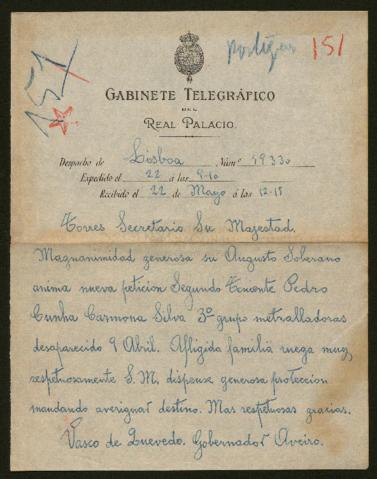 portugues 151
151
GABINETE TELEGRÁFICO
DEL
REAL PALACIO.
Despacho de Lisboa Núm° 59330
Expedido el 22 á las 9-10
Recibido el 22 de Mayo á las 12-15
Torres Secretario Su Majestad.
Magnanimidad generosa su Augusto Soberano
anima nueva peticion Segundo Tenente Pedro
Cunha Carmona Silva 3º grupo metralladoras
desaparecido 9 Abril. Afligida familia ruega muy
respetuosamente S.M. dispense generosa proteccion
mandando averiguar destino. Mas respetuosas gracias.
Vasco de Quevedo. Gobernador Aveiro.